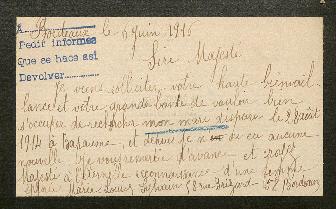 Bordeaux le 6 Juin 1916
A.
Pedir informes
Que se hace así
Devolver
Sire Majesté
Je viens solliciter votre haute bienveil
lance et votre grande bonté de vouloir bien
s'occuper de rechercher mon mari disparu le 28 août
1914 à Bapaume, et depuis je n eu aucune
nouvelle Je vous remercie d'avance et votre
Majesté à l'éternelle reconnaissance d'une femme
Marie Louise 58 rue Brizard 58 Bordeaux